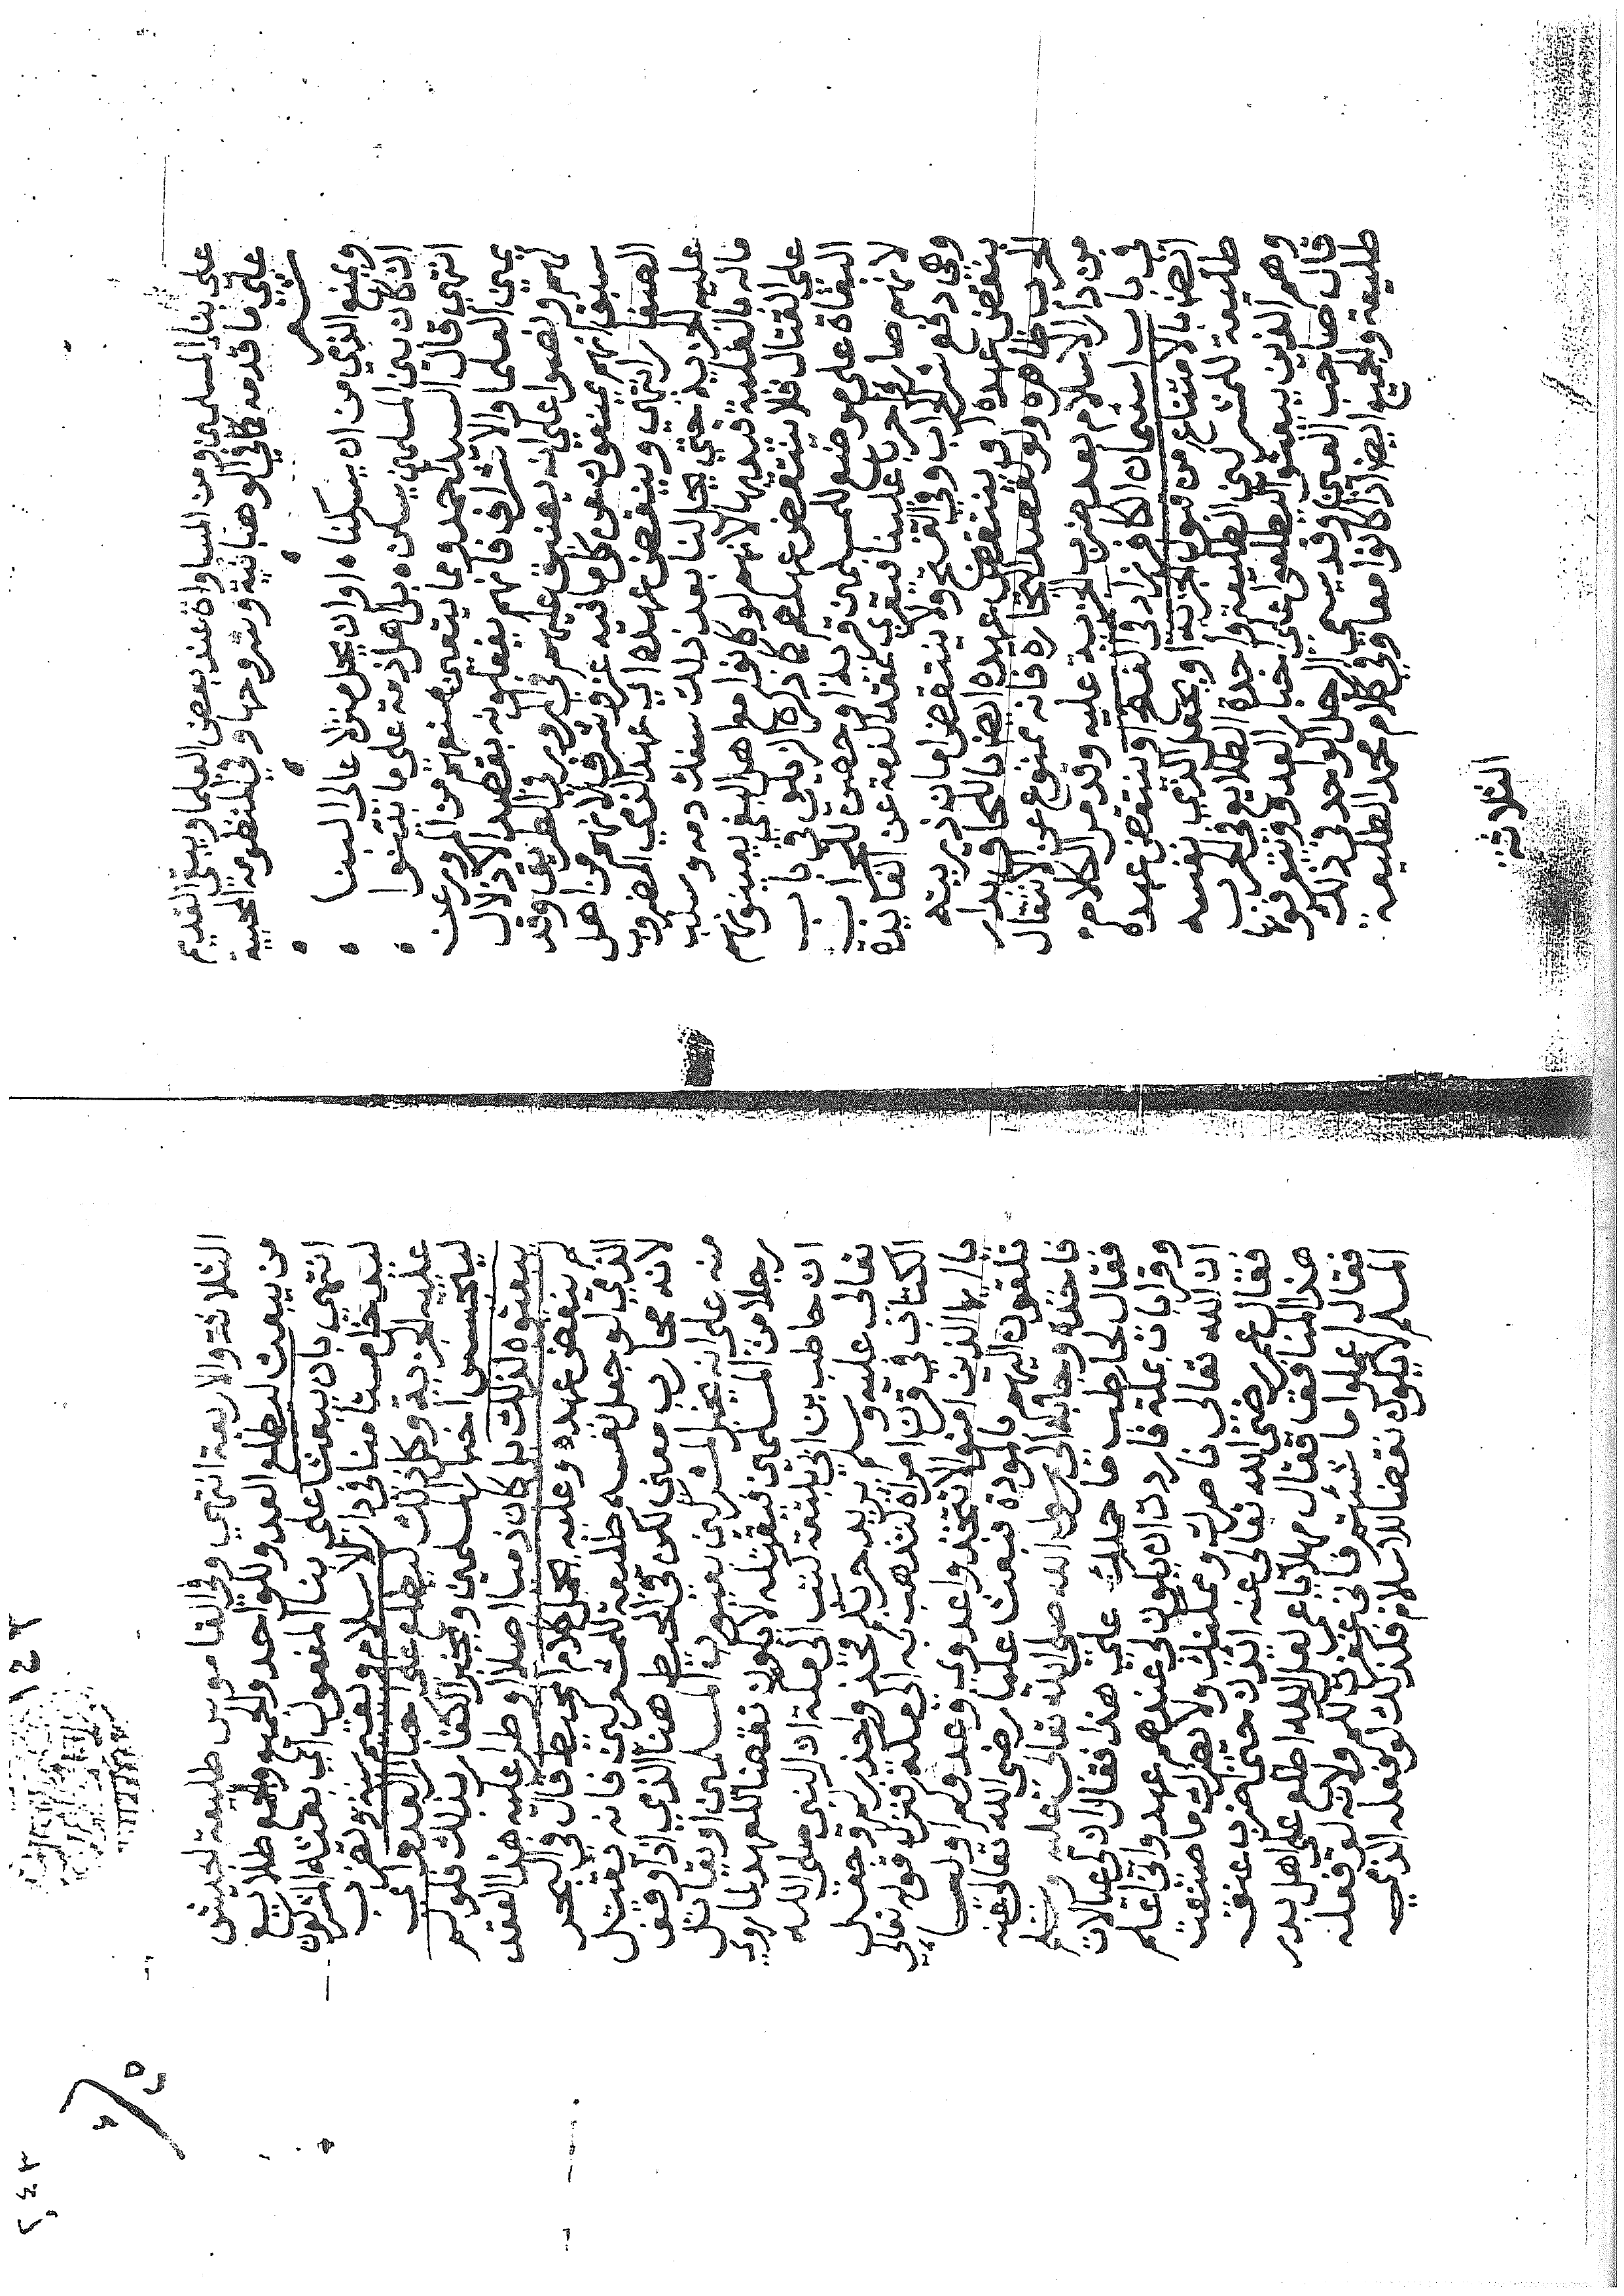 على بنا المسلمين ومن المساواة عند بعض العلما ويبقى القديم
على ما قدمه كما في الوهبانية وشرحها وفي المنظومة المحبية
شعر
ويمنع الذمي من ان يسكنا • او ان يحل منزلا عالى البنا
ان كان بين المسلمين يسكن • بل اهل ذمة على ما بينوا
انتهى قال السيد احمد ومما يتعين منعهم من المرور عن
يمين العلما والاشراف فانهم يفعلونه بقصد الاذلال
لهم ونصوا على انه يضيق عليهم في المرور في الطريق وقد
سبق انهم يمنعون عن كل ما فيه عز وشرف لانهم من اهل
الصغار انتهى وينتقض عهده اي عهد الذمي المضروب
عليه الجزية حتى يحل لنا بعد ذلك سفك دمه وسلب
ماله بالغلبة قيد بها لانهم لو كانوا مع اهل البغي يعينونهم
على القتال فلا ينتقض عهدهم كما ذكره الزيلعي في باب
البغاة على موضع للمسلمين قرية او حصن للحراب
لانهم صاروا حربا علينا فيعرى عقد الذمة عن الفايدة
وهي دفع شر الحراب وفي الفتح ولا ينتقض امان ذريته
بنقض عهده او ينتقض عهده ايضا باللحاق بدار
الحرب ظاهره ولو بقصد التجارة فانه ممنوع عن الانتقال
من دار الاسلام بعد ضرب الجزية عليه وقد مر الكلام
في باب استيمان الكافر زاد في الفتح او ينتقض عهده
ايضا بالامتناع من قبول الجزية او يجعل الذمي نفسه
طليعة للمشركين الطليعة واحدة الطلايع في الحرب
وهم الذين يبعثون ليطلعوا على اخبار العدو ويتعرفونها
قال صاحب العين وقد يسمى الرجل الواحد في ذلك
طليعة والجميع ايضا اذا كانوا معا وفي كلام محمد الطليعة
الثلاثة
الثلاثة والاربعة انتهى وفي القاموس طليعة الجيش
من يبعث ليطلع العدو وللواحد والجميع والجمع طلايع
انتهى بان يبعث على بنا المفعول اي بعثه المشركون
ليدخل مستامنا في دار الاسلام ويقيم سنة وتضرب
عليه الجزية وكان ذلك ليطلع على اخبار العدو اي
ليتجسس اخبار المسلمين ويخبر الكفار بذلك فلو لم
يبعثوه لذلك بل كان ذميا اصليا وطرا عليه هذا القصد
لم ينتقض عهده وعليه يحمل كلام المحيط قال في البحر
الذمي لو جعل نفسه طليعة للمشركين فانه يقتل
لانه محارب معنى لكن في المحيط هنا الذمي اذا وقف
منه على انه يخبر المشركين بعيوب المسلمين او يقاتل
رجلا من المسلمين فيقتله لا يكون نقضا للعهد لما روي
ان حاطب بن ابي بلتعة كتب الى مكة ان النبي صلى الله
تعالى عليه وسلم يريد حربكم فخذوا حذركم وجعل
الكتاب في قرن امراة لتذهب به الى مكة فنزل قوله تعالى
يا ايها الذين امنوا لا تتخذوا عدوي وعدوكم اوليا
تلقون اليهم بالمودة فبعث عليا رضي الله تعالى عنه
فاخذه وجا به الى رسول الله صلى الله تعالى عليه وسلم
فقال لحاطب ما حملك على هذا فقال ان لي عيالات
وقرابات بمكة فاردت ان يكون لي عندهم عهد واني اعلم
ان الله تعالى ناصرك وممكنك ولا يضرك ما صنعت
فقال عمر رضي الله تعالى عنه ائذن حتى اضرب عنق
هذا المنافق فقال مهلا يا عمر لعل الله اطلع على اهل بدر
فقال اعملوا ما شئتم فاني غفرت لكم ولانه لو فعله
المسلم لا يكون نقضا للاسلام فكذلك لو فعله الذمي